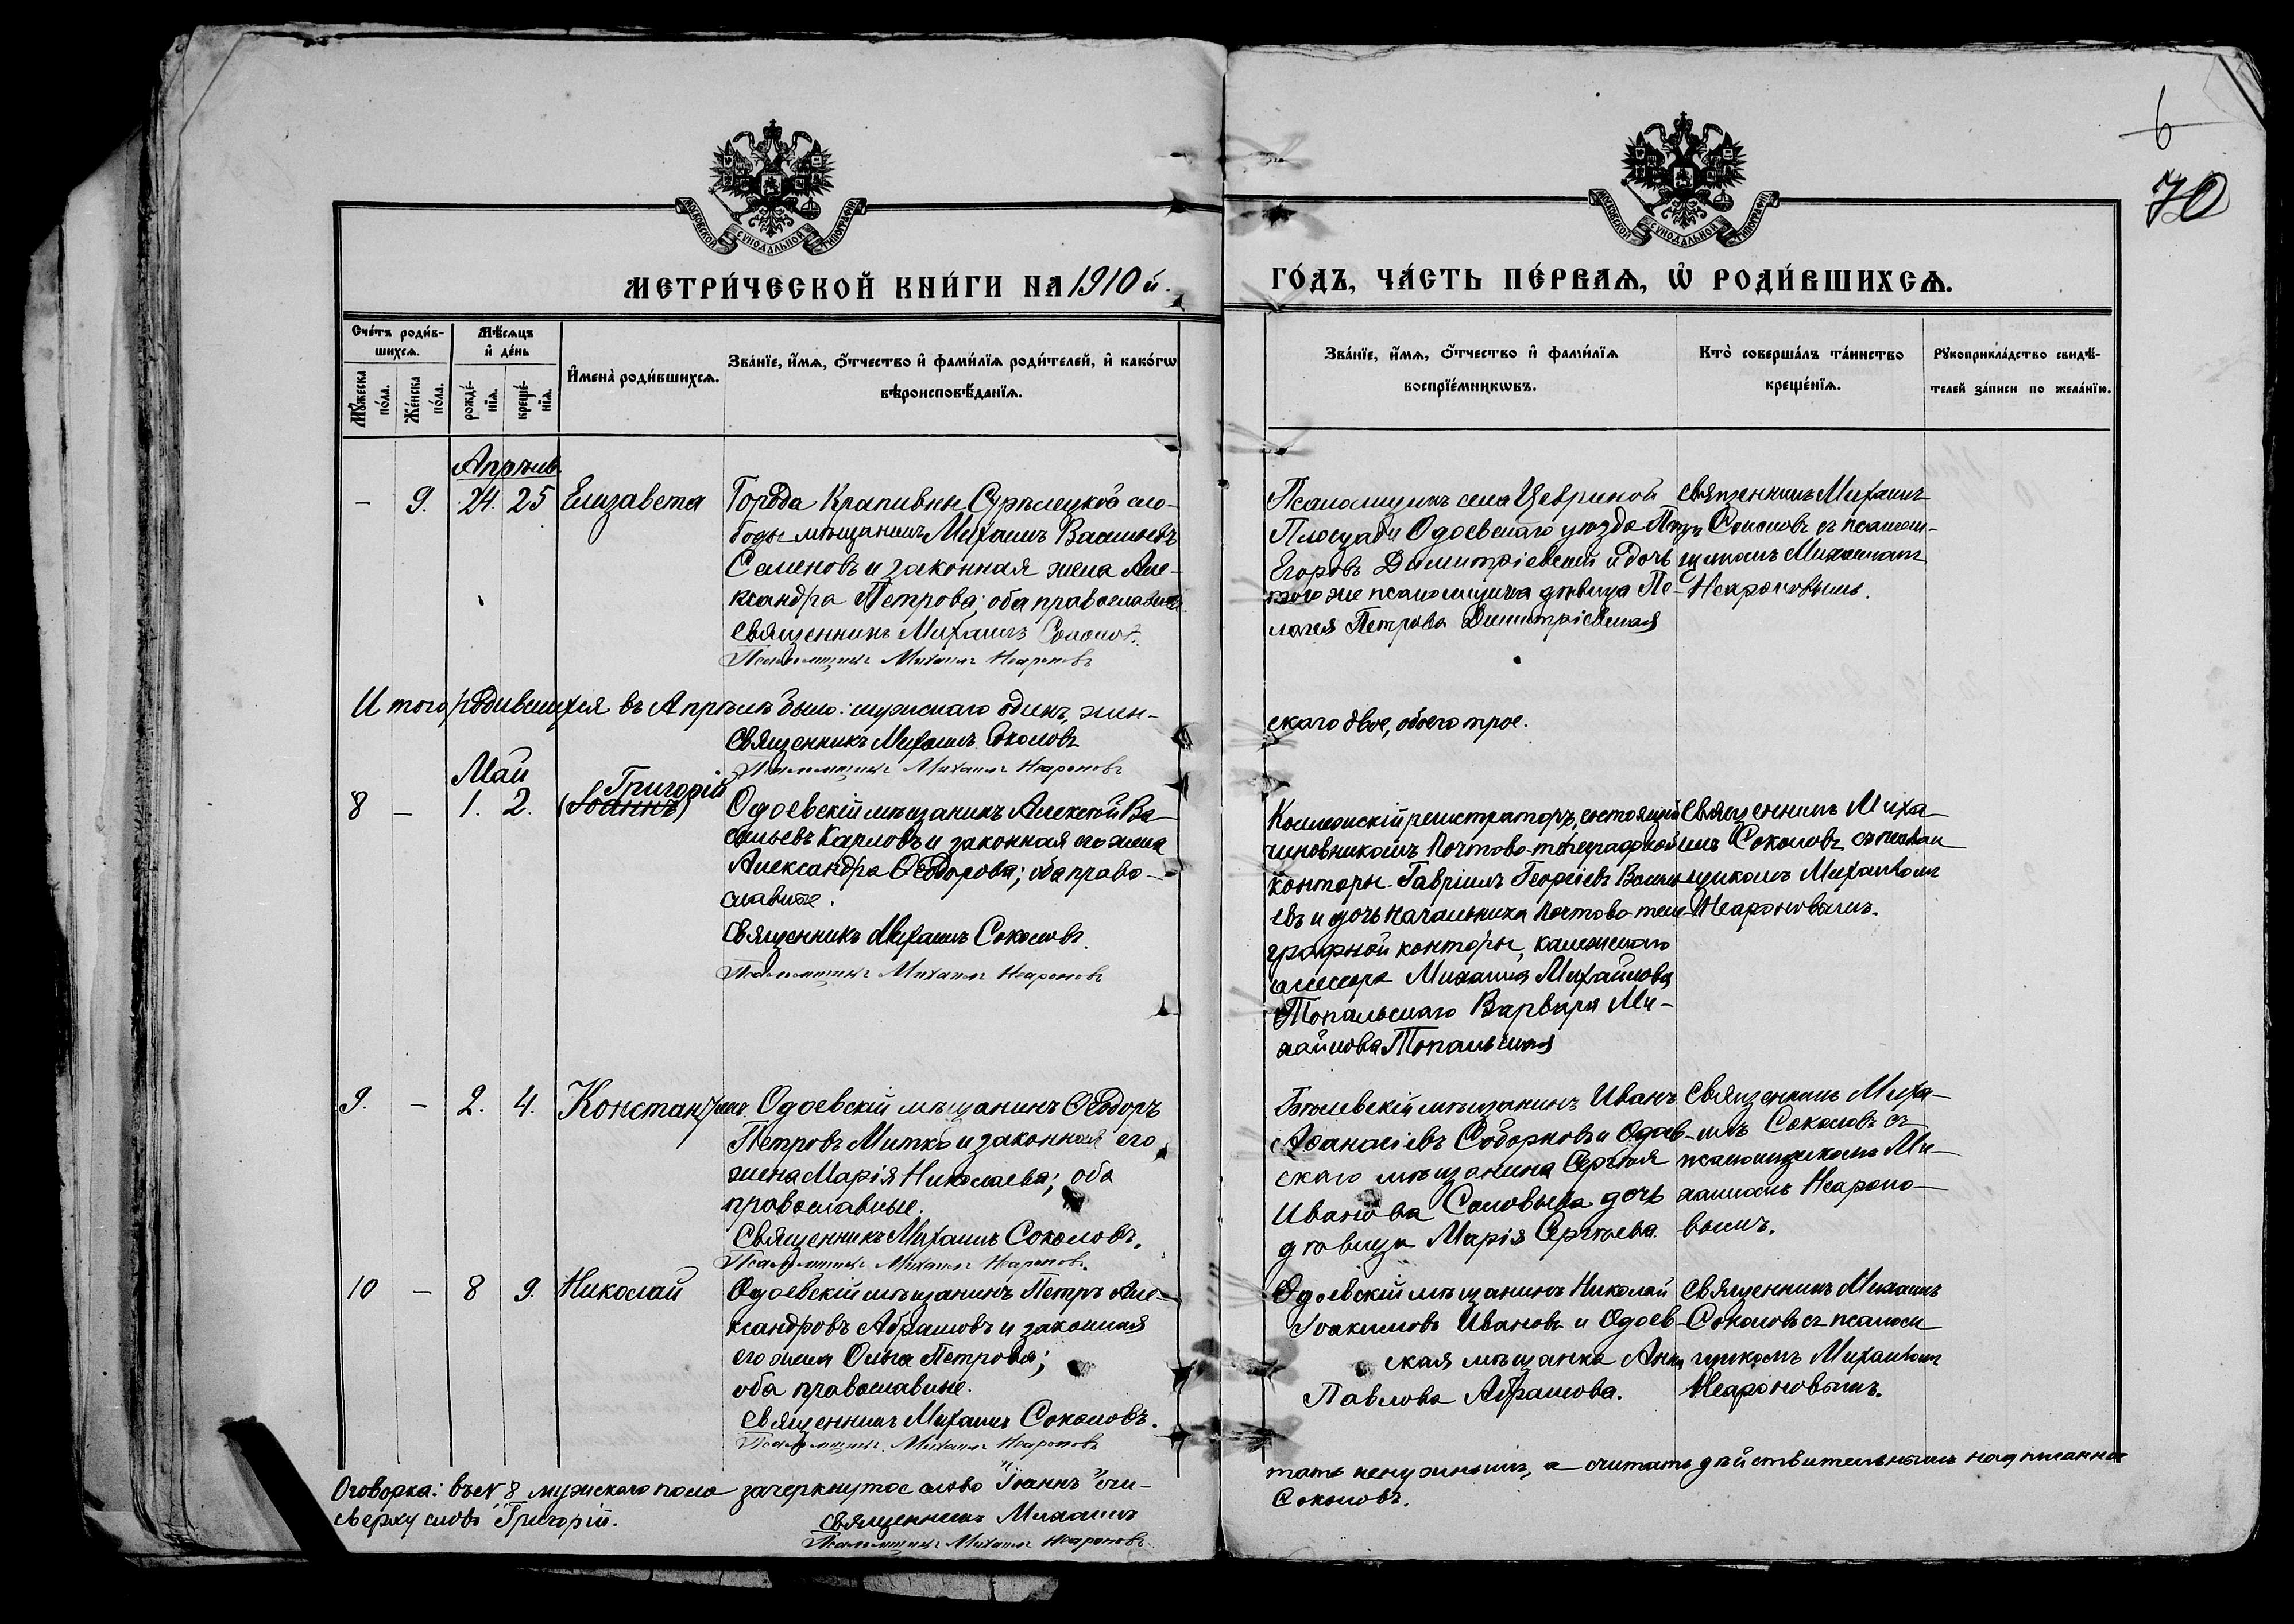 6
70
МОСКОВСКОЙ СѴНОДАЛЬНОЙ ТИПОГРАФІИ
МОСКОВСКОЙ СѴНОДАЛЬНОЙ ТИПОГРАФІИ
МЕТРИ́ЧЕСКОЙ КНИ́ГИ НА 1910 й.
ГО́ДЪ, ЧА́СТЬ ПЕ́РВАѦ, Ѡ҆ РОДИ́ВШИХСѦ.
Сче́тъ роди́в-
шихсѧ.
Мѣ́сѧцъ
и҆ де́нь
И҆мена̀ роди́вшихсѧ.
Зва́нїе, и҆́мѧ, ѻ҆́тчество и҆ фами́лїѧ роди́телей, и҆ како́гѡ
вѣроисповѣ́данїѧ.
Мꙋ́жеска по́ла.
Же́нска по́ла.
рожде́-нїѧ.
креще́-нїѧ.
Зва́нїе, и҆́мѧ, ѻ҆́тчество и҆ фами́лїѧ
воспрїе́мникѡвъ.
Кто̀ соверша́лъ та́инство
креще́нїѧ.
Рꙋкоприкла́дство свидѣ́-
телей за́писи по жела́нїю.
Апрѣль.
– 9. 24. 25 Елизавета
Города Крапивны Стрѣлецкой сло-
боды мѣщанинъ Михаилъ Васильевъ
Семеновъ и законная жена Але-
ксандра Петрова; оба православные
Священникъ Михаилъ Соколовъ.
Псаломщикъ Михаилъ Неароновъ
Псаломщикъ села Площади Одоевскаго уѣзда Петръ
Егоровъ Димитріевскій и дочь
того же псаломщика дѣвица Пе-
лагея Петрова Димитріевская
Священникъ Михаилъ
Соколовъ съ псалом-
щикомъ Михаиломъ
Неароновымъ.
Итого родившихся въ Апрѣлѣ было: мужскаго одинъ, жен-
скаго двое, обоего трое.
Священникъ Михаилъ Соколовъ
Псаломщикъ Михаилъ Неароновъ
Май
Григорій
8 – 1. 2. (Іоаннъ)
Одоевскій мѣщанинъ Алексѣй Ва-
сильевъ Карповъ и законная его жена
Александра Ѳеодорова; оба право-
славные.
Священникъ Михаилъ Соколовъ.
Псаломщикъ Михаилъ Неароновъ
Коллежскій регистраторъ, состоящій
чиновникомъ Почтово-телеграфной
конторы Гавріилъ Георгіевъ Василь-
евъ и дочь начальника почтово-теле-
графной конторы, коллежскаго
ассесора Михаила Михайлова
Топальскаго Варвара Ми-
хайлова Топальская
Священникъ Миха-
илъ Соколовъ съ псалом
щикомъ Михаиломъ
Неароновымъ.
9. – 2. 4. Константинъ
Одоевскій мѣщанинъ Ѳеодоръ
Петровъ Митко и законная его
жена Марія Николаева; оба
православные.
Священникъ Михаилъ Соколовъ.
Псаломщикъ Михаилъ Неароновъ.
Бѣлевскій мѣщанинъ Иванъ
Аѳанасіевъ Соборновъ и Одоев-
скаго мѣщанина Сергѣя
Иванова Соловьева дочь
дѣвица Марія Сергѣева.
Священникъ Миха-
илъ Соколовъ съ
псаломщикомъ Ми-
хаиломъ Неароно-
вымъ.
10 – 8 9. Николай
Одоевскій мѣщанинъ Петръ Але-
ксандровъ Абрамовъ и законная
его жена Ольга Петрова;
оба православные.
Священникъ Михаилъ Соколовъ.
Псаломщикъ Михаилъ Неароновъ
Одоевскій мѣщанинъ Николай
Іоакимовъ Ивановъ и Одоев-
ская мѣщанка Анна
Павлова Абрамова.
Священникъ Михаилъ
Соколовъ съ псалом
щикомъ Михаиломъ
Неароновымъ.
Оговорка: въ № 8 мужского пола зачеркнутое слово "Іоаннъ" счи-
тать ненужнымъ, а считать дѣйствительнымъ надписанное
сверху слово "Григорій".
Священникъ Михаилъ
Соколовъ.
Псаломщикъ Михаилъ Неароновъ.